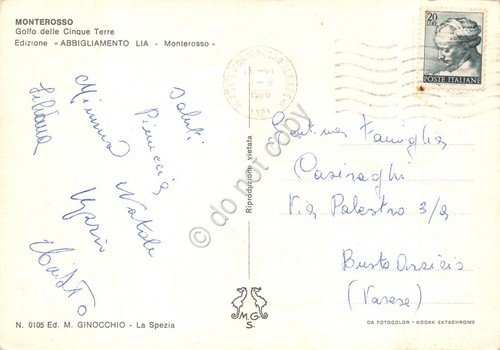 MONTEROSSO
Golfo delle Cinque Terre
Edizione «ABBIGLIAMENTO LIA - Monterosso»
Saluti
Pinuccia
Natale
Mimma
Liliana
20
LIRE
POSTE ITALIANE
Riproduzione vietata
do not copy
Gent.ma Famiglia
Casiraghi
Via Palestro 3/a
Busto Arsizio
(Varese)
N. 0105 Ed. M. GINOCCHIO - La Spezia
M.G.
S.
DA FOTOCOLOR - KODAK EKTACHROME